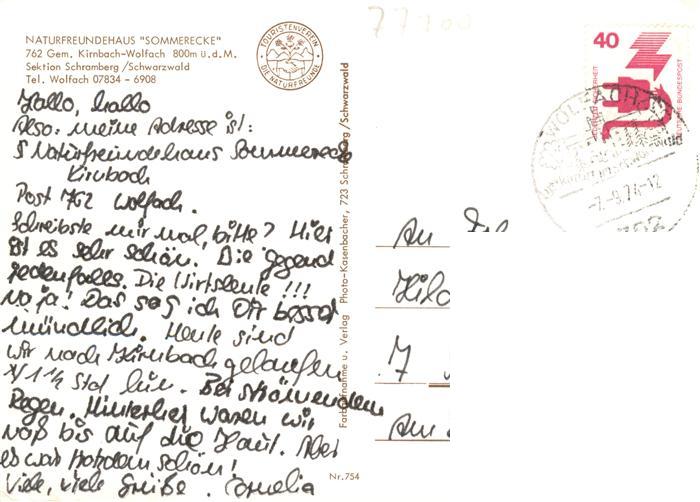 NATURFREUNDEHAUS "SOMMERECKE"
762 Gem. Kirnbach-Wolfach 800m ü.d.M.
Sektion Schramberg/Schwarzwald
Tel. Wolfach 07834 - 6908
TOURISTENVEREIN
DIE NATURFREUNDE
Hallo, hallo
Also: meine Adresse ist:
Naturfreundehaus Sommereck
Kirnbach
Post 762 Wolfach.
Schreibste mir mal, bitte? Hier
ist es sehr schön. Die Gegend
jedenfalls. Die Wirtsleute !!!
Na ja! Das sag ich Dir besser
mündlich. Heute sind
wir nach Kirnbach gelaufen
1 1/2 Std hin. Bei strömendem
Regen. Hinterher waren wir
naß bis auf die Haut. Aber
es war trotzdem schön!
Viele, viele Grüße. Cornelia
Farbaufnahme u. Verlag Photo-Kasenbacher, 723 Schramberg/Schwarzwald
Nr. 754
77700
40
DEUTSCHE BUNDESPOST
WOLFACH
-7.-9.74-12
An
Hil
7
An